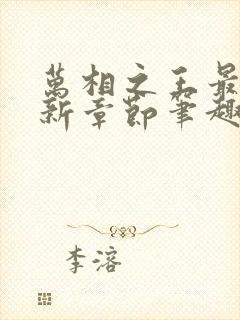 萬相之王最
新章節筆趣
李溶